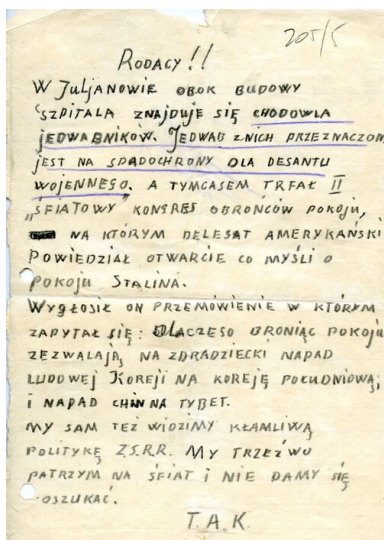 205/5
RODACY!!
W JULJANOWIE OBOK BUDOWY
SZPITALA ZNAJDUJE SIĘ CHODOWLA
JEDWABNIKOW. JEDWAB Z NICH PRZEZNACZON
JEST NA SPADOCHRONY DLA DESANTU
WOJENNEGO. A TYMCASEM TRFAŁ II
„ŚFIATOWY" KONGRES OBROŃCÓW POKOJU,
NA KTÓRYM DELEGAT AMERYKAŃSKI
POWIEDZIAŁ OTWARCIE CO MYŚLI O
POKOJU STALINA.
WYGŁOSIŁ ON PRZEMÓWIENIE W KTÓRYM
ZAPYTAŁ SIĘ: DLACZEGO BRONIĄC POKOJU
ZEZWALAJĄ NA ZDRADZIECKI NAPAD
LUDOWEJ KOREJI NA KOREJĘ POŁUDNIOWĄ;
I NAPAD CHIN NA TYBET.
MY SAM TEŻ WIDZIMY KŁAMLIWĄ
POLITYKĘ Z.S.R.R. MY TRZEŹWO
PATRZYM NA ŚFIAT I NIE DAMY SIĘ
OSZUKAĆ.
T.A.K.